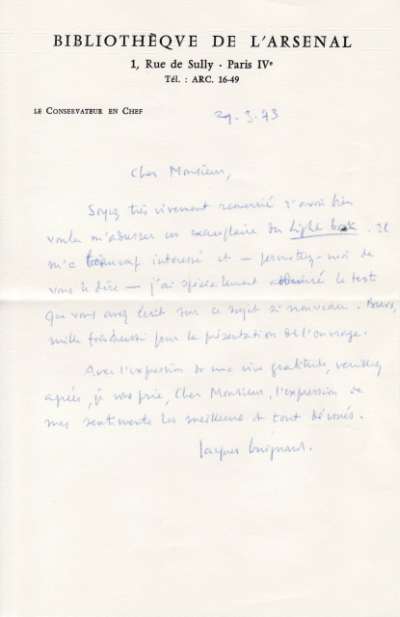 BIBLIOTHÈQVE DE L'ARSENAL
1, Rue de Sully · Paris IVe
Tél. : ARC. 16-49
LE CONSERVATEUR EN CHEF
29.3.73
Cher Monsieur,
Soyez très vivement remercié d'avoir bien
voulu m'adresser un exemplaire du Light book. Il
m'a beaucoup intéressé et — permettez-moi de
vous le dire — j'ai spécialement le texte
que vous avez écrit sur ce sujet si nouveau. Bravo,
mille fois pour la présentation de l'ouvrage.
Avec l'expression de ma vive gratitude, veuillez
agréer, je vous prie, Cher Monsieur, l'expression de
mes sentiments les meilleurs et tout dévoués.
Jacques Guignard.